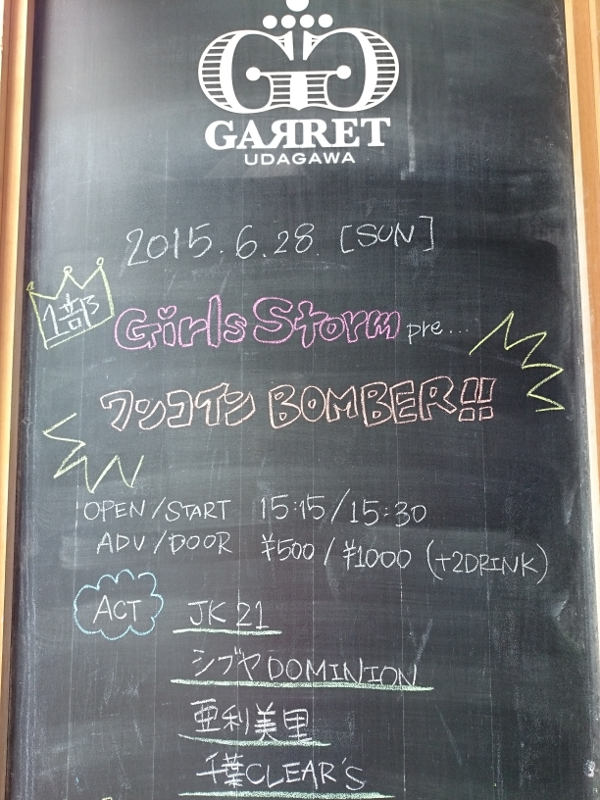 GG
GARRET
UDAGAWA
2015.6.28. [SUN]
1部
Girls Storm pre...
ワンコイン BOMBER!!
OPEN/START 15:15/15:30
ADV/DOOR ¥500/¥1000 (+2DRINK)
ACT
JK21
シブヤDOMINION
亜利美里
千葉CLEAR'S